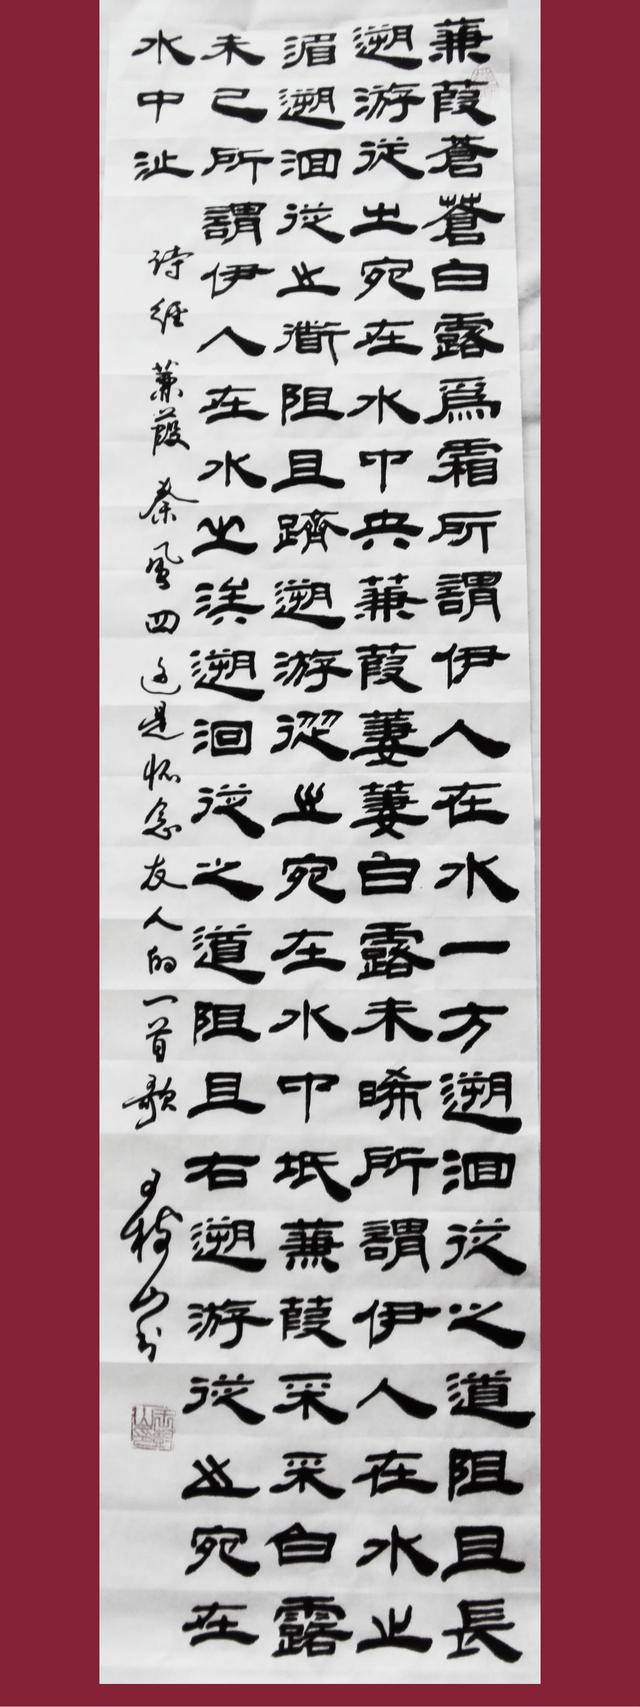 蒹葭蒼蒼白露爲霜所謂伊人在水一方遡洄從之道阻且長
遡游從之宛在水中央蒹葭萋萋白露未晞所謂伊人在水之
湄遡洄從之衜阻且躋遡游從之宛在水中坻蒹葭采采白露
未已所謂伊人在水之涘遡洄從之道阻且右遡游從之宛在
水中沚
诗经 蒹葭 秦风四 这是怀念友人的一首歌